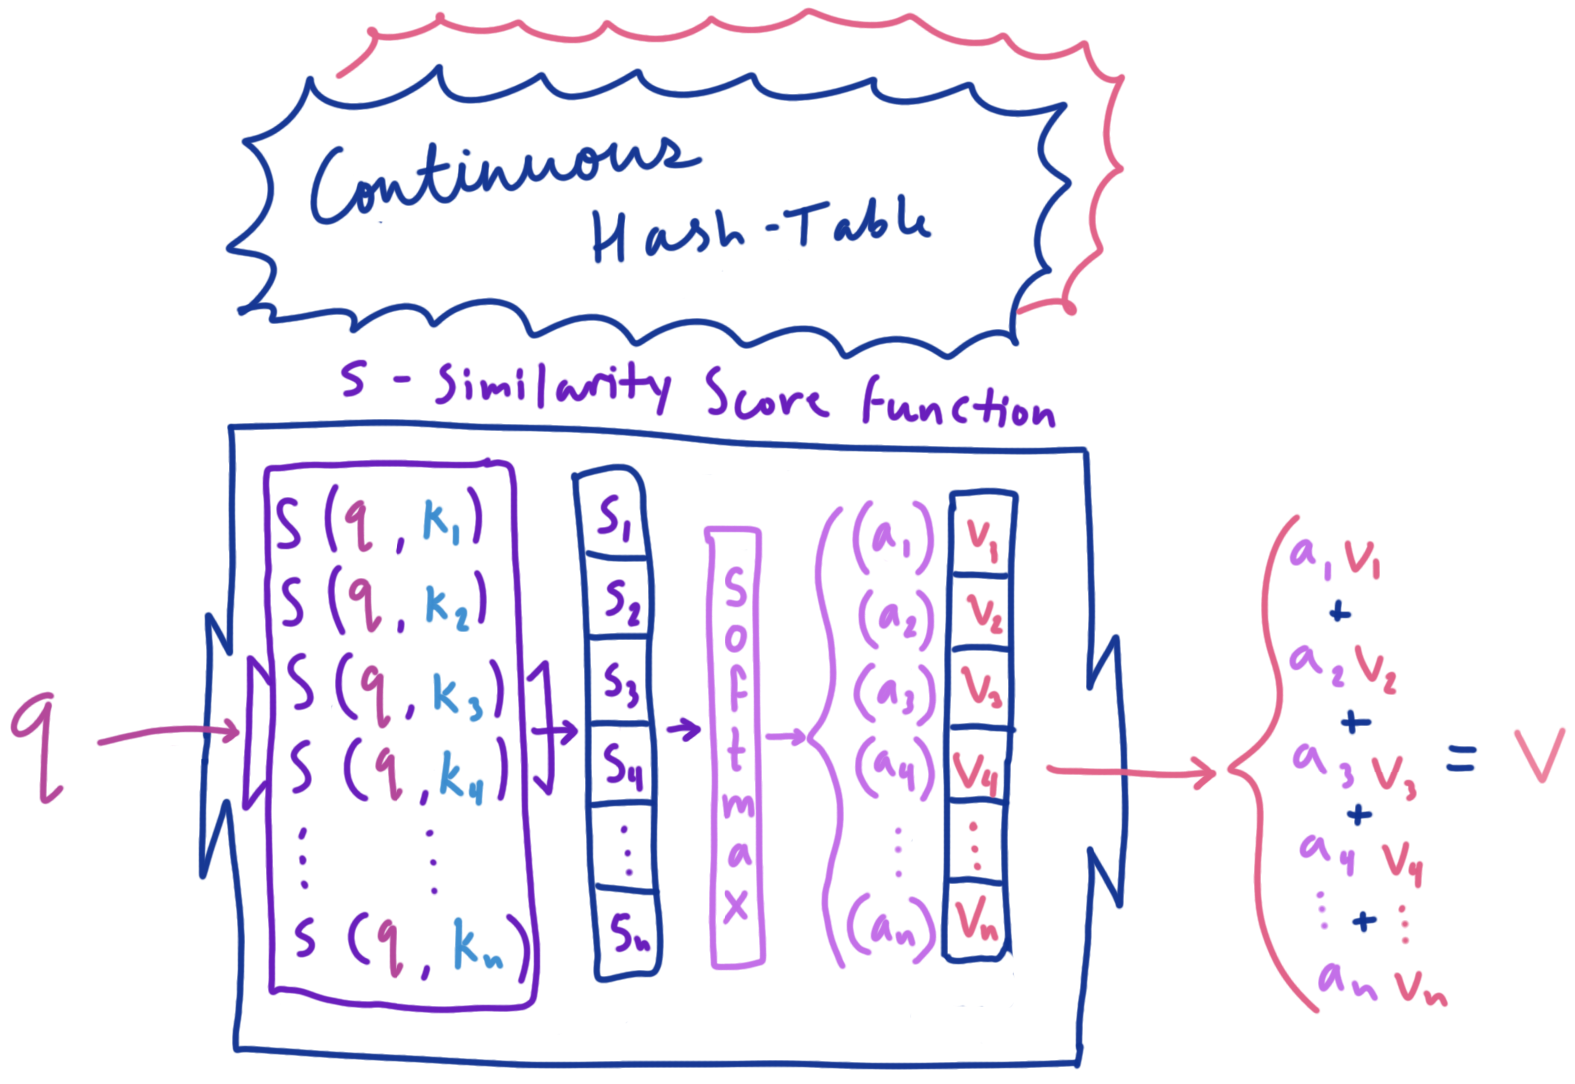 Continuous
Hash-Table
S - Similarity Score function
q
S (q, k1)
S (q, k2)
S (q, k3)
S (q, k4)
⋮ ⋮
S (q, kn)
S1
S2
S3
S4
⋮
Sn
Softmax
(a1)
(a2)
(a3)
(a4)
⋮
(an)
V1
V2
V3
V4
⋮
Vn
a1 V1
+
a2 V2
+
a3 V3
+
a4 V4
⋮ + ⋮
an Vn
= V